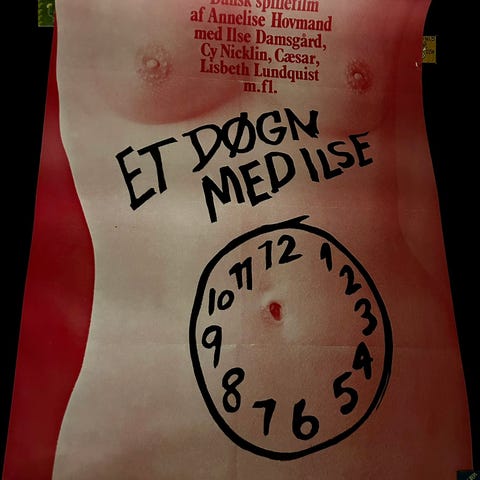 Dansk spillefilm
af Annelise Hovmand
med Ilse Damsgård,
Cy Nicklin, Cæsar,
Lisbeth Lundquist
m.fl.
ET DØGN
MED ILSE
12
1
2
3
4
5
6
7
8
9
10
11